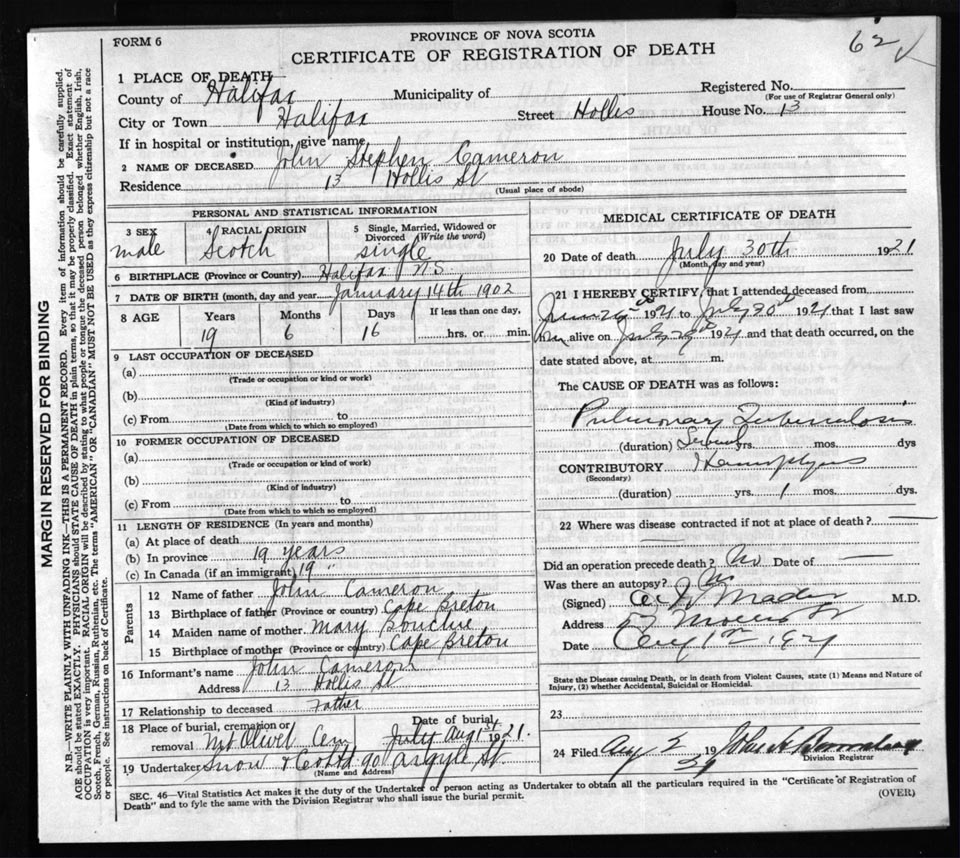 62 ✓
FORM 6
PROVINCE OF NOVA SCOTIA
CERTIFICATE OF REGISTRATION OF DEATH
1 PLACE OF DEATH
County of Halifax Municipality of Registered No.
(For use of Registrar General only)
City or Town Halifax Street Hollis House No. 13
If in hospital or institution, give name
2 NAME OF DECEASED John Stephen Cameron
Residence 13 Hollis St
(Usual place of abode)
PERSONAL AND STATISTICAL INFORMATION
3 SEX 4 RACIAL ORIGIN 5 Single, Married, Widowed or Divorced (Write the word)
male Scotch single
6 BIRTHPLACE (Province or Country) Halifax N.S.
7 DATE OF BIRTH (month, day and year) January 14th 1902
8 AGE Years Months Days If less than one day,
19 6 16 hrs. or min.
9 LAST OCCUPATION OF DECEASED
(a)
(Trade or occupation or kind or work)
(b)
(Kind of industry)
(c) From to
(Date from which to which so employed)
10 FORMER OCCUPATION OF DECEASED
(a)
(Trade or occupation or kind of work)
(b)
(Kind of industry)
(c) From to
(Date from which to which so employed)
11 LENGTH OF RESIDENCE (In years and months)
(a) At place of death
(b) In province 19 years
(c) In Canada (if an immigrant) 19 "
Parents
12 Name of father John Cameron
13 Birthplace of father (Province or country) Cape Breton
14 Maiden name of mother Mary Bouchie
15 Birthplace of mother (Province or country) Cape Breton
16 Informant's name John Cameron
Address 13 Hollis St
17 Relationship to deceased Father
18 Place of burial, cremation or removal Mt Olivet Cem Date of burial July Aug 1st 1921.
19 Undertaker Snow & Co Ltd 90 Argyle St.
(Name and Address)
MEDICAL CERTIFICATE OF DEATH
20 Date of death July 30th 1921
(Month, day and year)
21 I HEREBY CERTIFY, that I attended deceased from
1921 to July 30th 1921 that I last saw
him alive on July 29th 1921 and that death occurred, on the
date stated above, at m.
The CAUSE OF DEATH was as follows:
Pulmonary Tuberculosis
(duration) Several yrs. mos. dys
CONTRIBUTORY
(Secondary)
(duration) yrs. 1 mos. dys.
22 Where was disease contracted if not at place of death?
Did an operation precede death? No Date of
Was there an autopsy? No
(Signed) Mader M.D.
Address Morris St
Date Aug 1st 1921
State the Disease causing Death, or in death from Violent Causes, state (1) Means and Nature of
Injury, (2) whether Accidental, Suicidal or Homicidal.
23
24 Filed Aug 3 19 21
Division Registrar
SEC. 46—Vital Statistics Act makes it the duty of the Undertaker or person acting as Undertaker to obtain all the particulars required in the "Certificate of Registration of
Death" and to fyle the same with the Division Registrar who shall issue the burial permit.
(OVER)
MARGIN RESERVED FOR BINDING
N.B.—WRITE PLAINLY WITH UNFADING INK—THIS IS A PERMANENT RECORD. Every item of information should be carefully supplied.
AGE should be stated EXACTLY. PHYSICIANS should STATE CAUSE OF DEATH in plain terms, so that it may be properly classified. Exact statement of
OCCUPATION is very important. RACIAL ORIGIN will be described by stating to what people or tongue the deceased person belonged whether English, Irish,
Scotch, French, German, Russian, Ruthenian, etc. The terms "AMERICAN" OR "CANADIAN" MUST NOT BE USED as they express citizenship but not a race
or people. See instructions on back of Certificate.